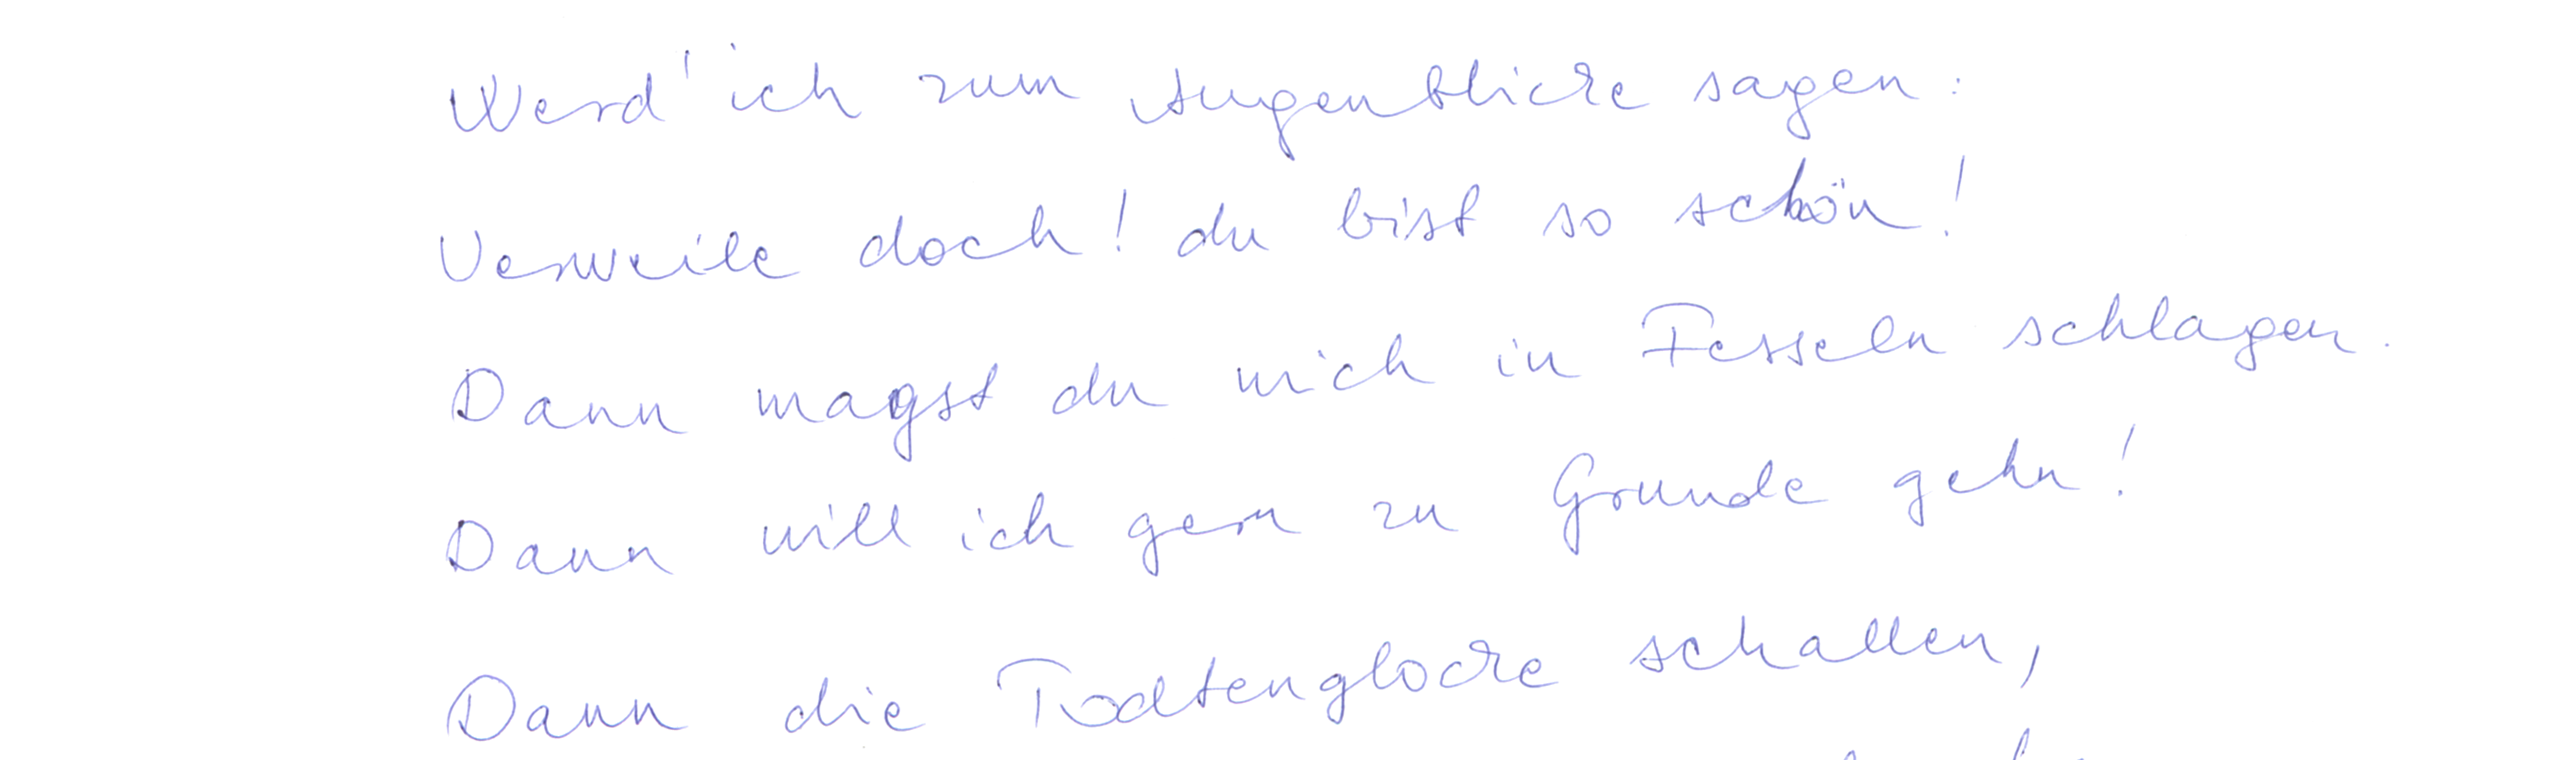 Werd' ich zum Augenblicke sagen:
Verweile doch! du bist so schön!
Dann magst du mich in Fesseln schlagen.
Dann will ich gern zu Grunde gehn!
Dann die Todtenglocke schallen,